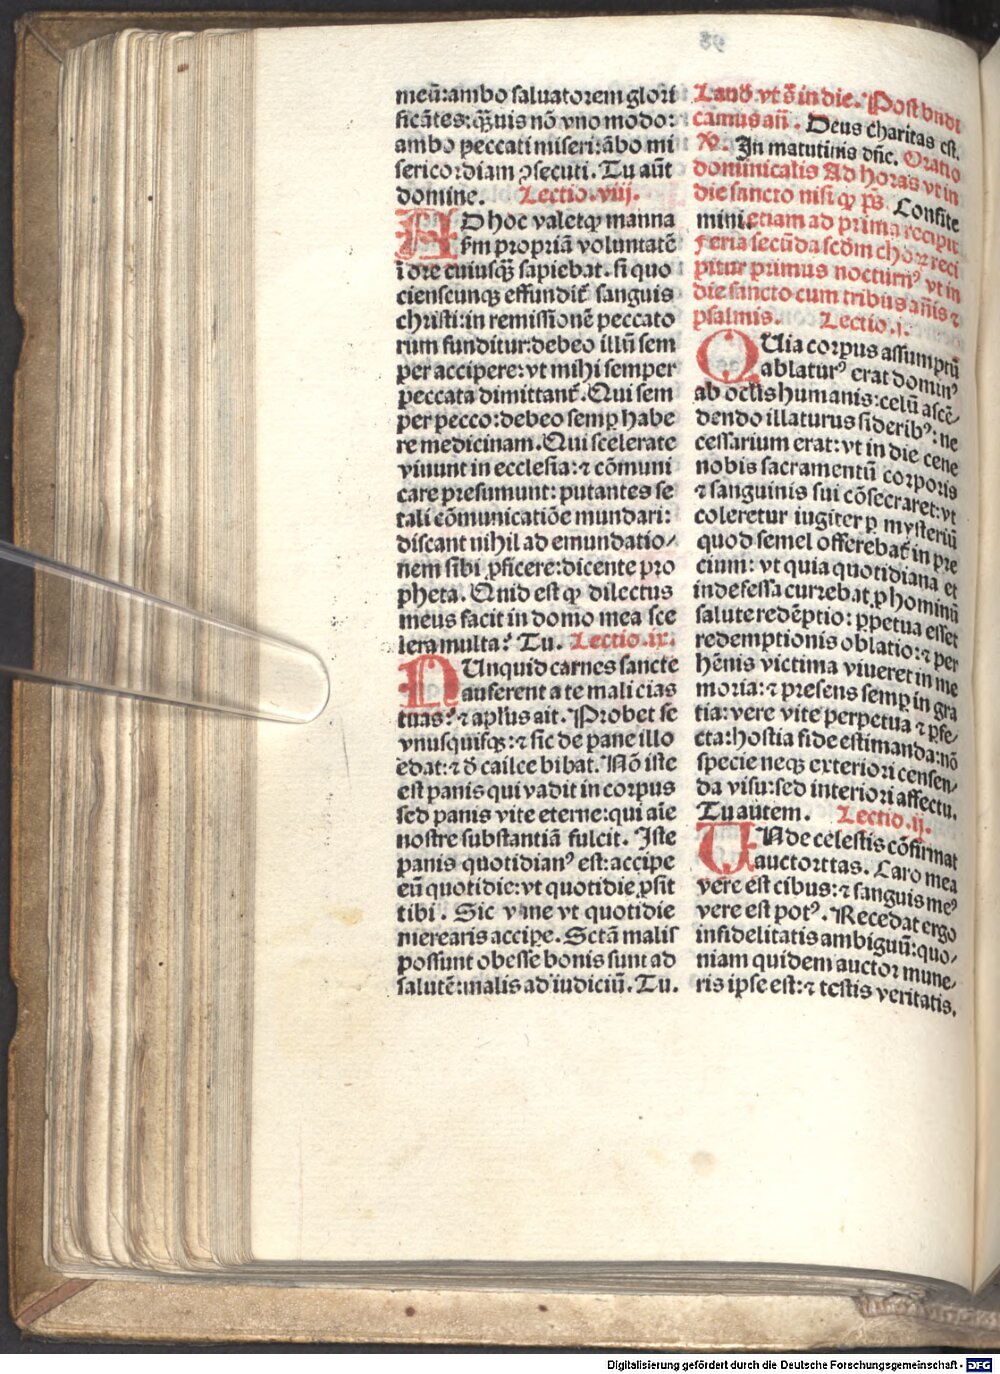 meū: ambo saluatorem glori
ficātes: qȝ̄uis nō vno modo:
ambo peccati miseri: ābo mi
sericordiam ꝯsecuti. Tu aūt
domine. Lectio. viij.
AD hoc valet qꝫ manna
scdm propriā voluntatē
ī ore cuiusqȝ sapiebat. si quo
ciēscunqȝ effundit᷑ sanguis
christi: in remissionē peccato
rum funditur: debeo illū sem
per accipere: vt mihi semper
peccata dimittant᷑. Qui sem
per pecco: debeo semp̱ habe
re medicinam. Qui scelerate
viuunt in ecclesia: ⁊ cōmuni
care presumunt: putantes se
tali cōmunicatiōe mundari:
discant nihil ad emundatio⸗
nem sibi ꝓficere: dicente pro
pheta. Quid est qꝫ dilectus
meus facit in domo mea sce
lera multa? Tu. Lectio. ix.
NUnquid carnes sancte
auferent a te malicias
tuas? ⁊ apl̄us ait. Probet se
vnusquisqȝ: ⁊ sic de pane illo
edat: ⁊ d̄ cailce bibat. Nō iste
est panis qui vadit in corpus
sed panis vite eterne: qui aīe
nostre substantiā fulcit. Iste
panis quotidianꝰ est: accipe
eū quotidie: vt quotidie ꝓsit
tibi. Sic viue vt quotidie
merearis accipe. Sctā malis
possunt obesse bonis sunt ad
salutē: malis ad iudiciū. Tu.
Laud̄. vt s̄ in die. Post bndi
camus añ. Deus charitas est.
V. In matutinis dn̄c. Oratio
dominicalis Ad horas vt in
die sancto nisi qꝫ ps̄. Confite
mini. etiam ad primā recipit᷑
Feria secūda scdm choꝝ reci
pitur primus nocturnꝰ vt in
die sancto cum tribus añis ⁊
psalmis. Lectio. i.
QUia corpus assumptū
ablaturꝰ erat dominꝰ
ab oclīs humanis: celū ascē⸗
dendo illaturus sideribꝰ: ne
cessarium erat: vt in die cene
nobis sacramentū corporis
⁊ sanguinis sui cōsecraret: vt
coleretur iugiter ꝑ mysteriū
quod semel offerebat᷑ in pre
cium: vt quia quotidiana et
indefessa currebat ꝑ hominū
salute redēptio: ꝑpetua esset
redemptionis oblatio: ⁊ per
hēnis victima viueret in me
moria: ⁊ presens semp̱ in gra
tia: vere vite perpetua ⁊ ꝑfe⸗
cta: hostia fide estimanda: nō
specie neqȝ exteriori censen⸗
da visu: sed interiori affectu.
Tu autem. Lectio. ij.
UNde celestis cōfirmat
auctorttas. Caro mea
vere est cibus: ⁊ sanguis meꝰ
vere est potꝰ. Recedat ergo
infidelitatis ambiguū: quo⸗
niam quidem auctor mune⸗
ris ipse est: ⁊ testis veritatis.
Digitalisierung gefördert durch die Deutsche Forschungsgemeinschaft - DFG